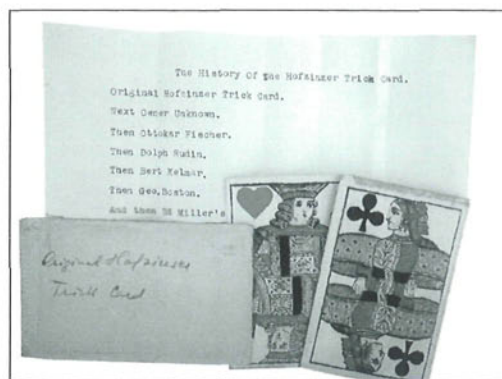 The History Of the Hofzinzer Trick Card.
Original Hofzinzer Trick Card.
Next Owner Unknown.
Then Ottokar Fischer.
Then Dolph Rudin.
Then Bert Kelmar.
Then Geo.Boston.
And then Ed Miller's
Original Hofzinser
Trick Card